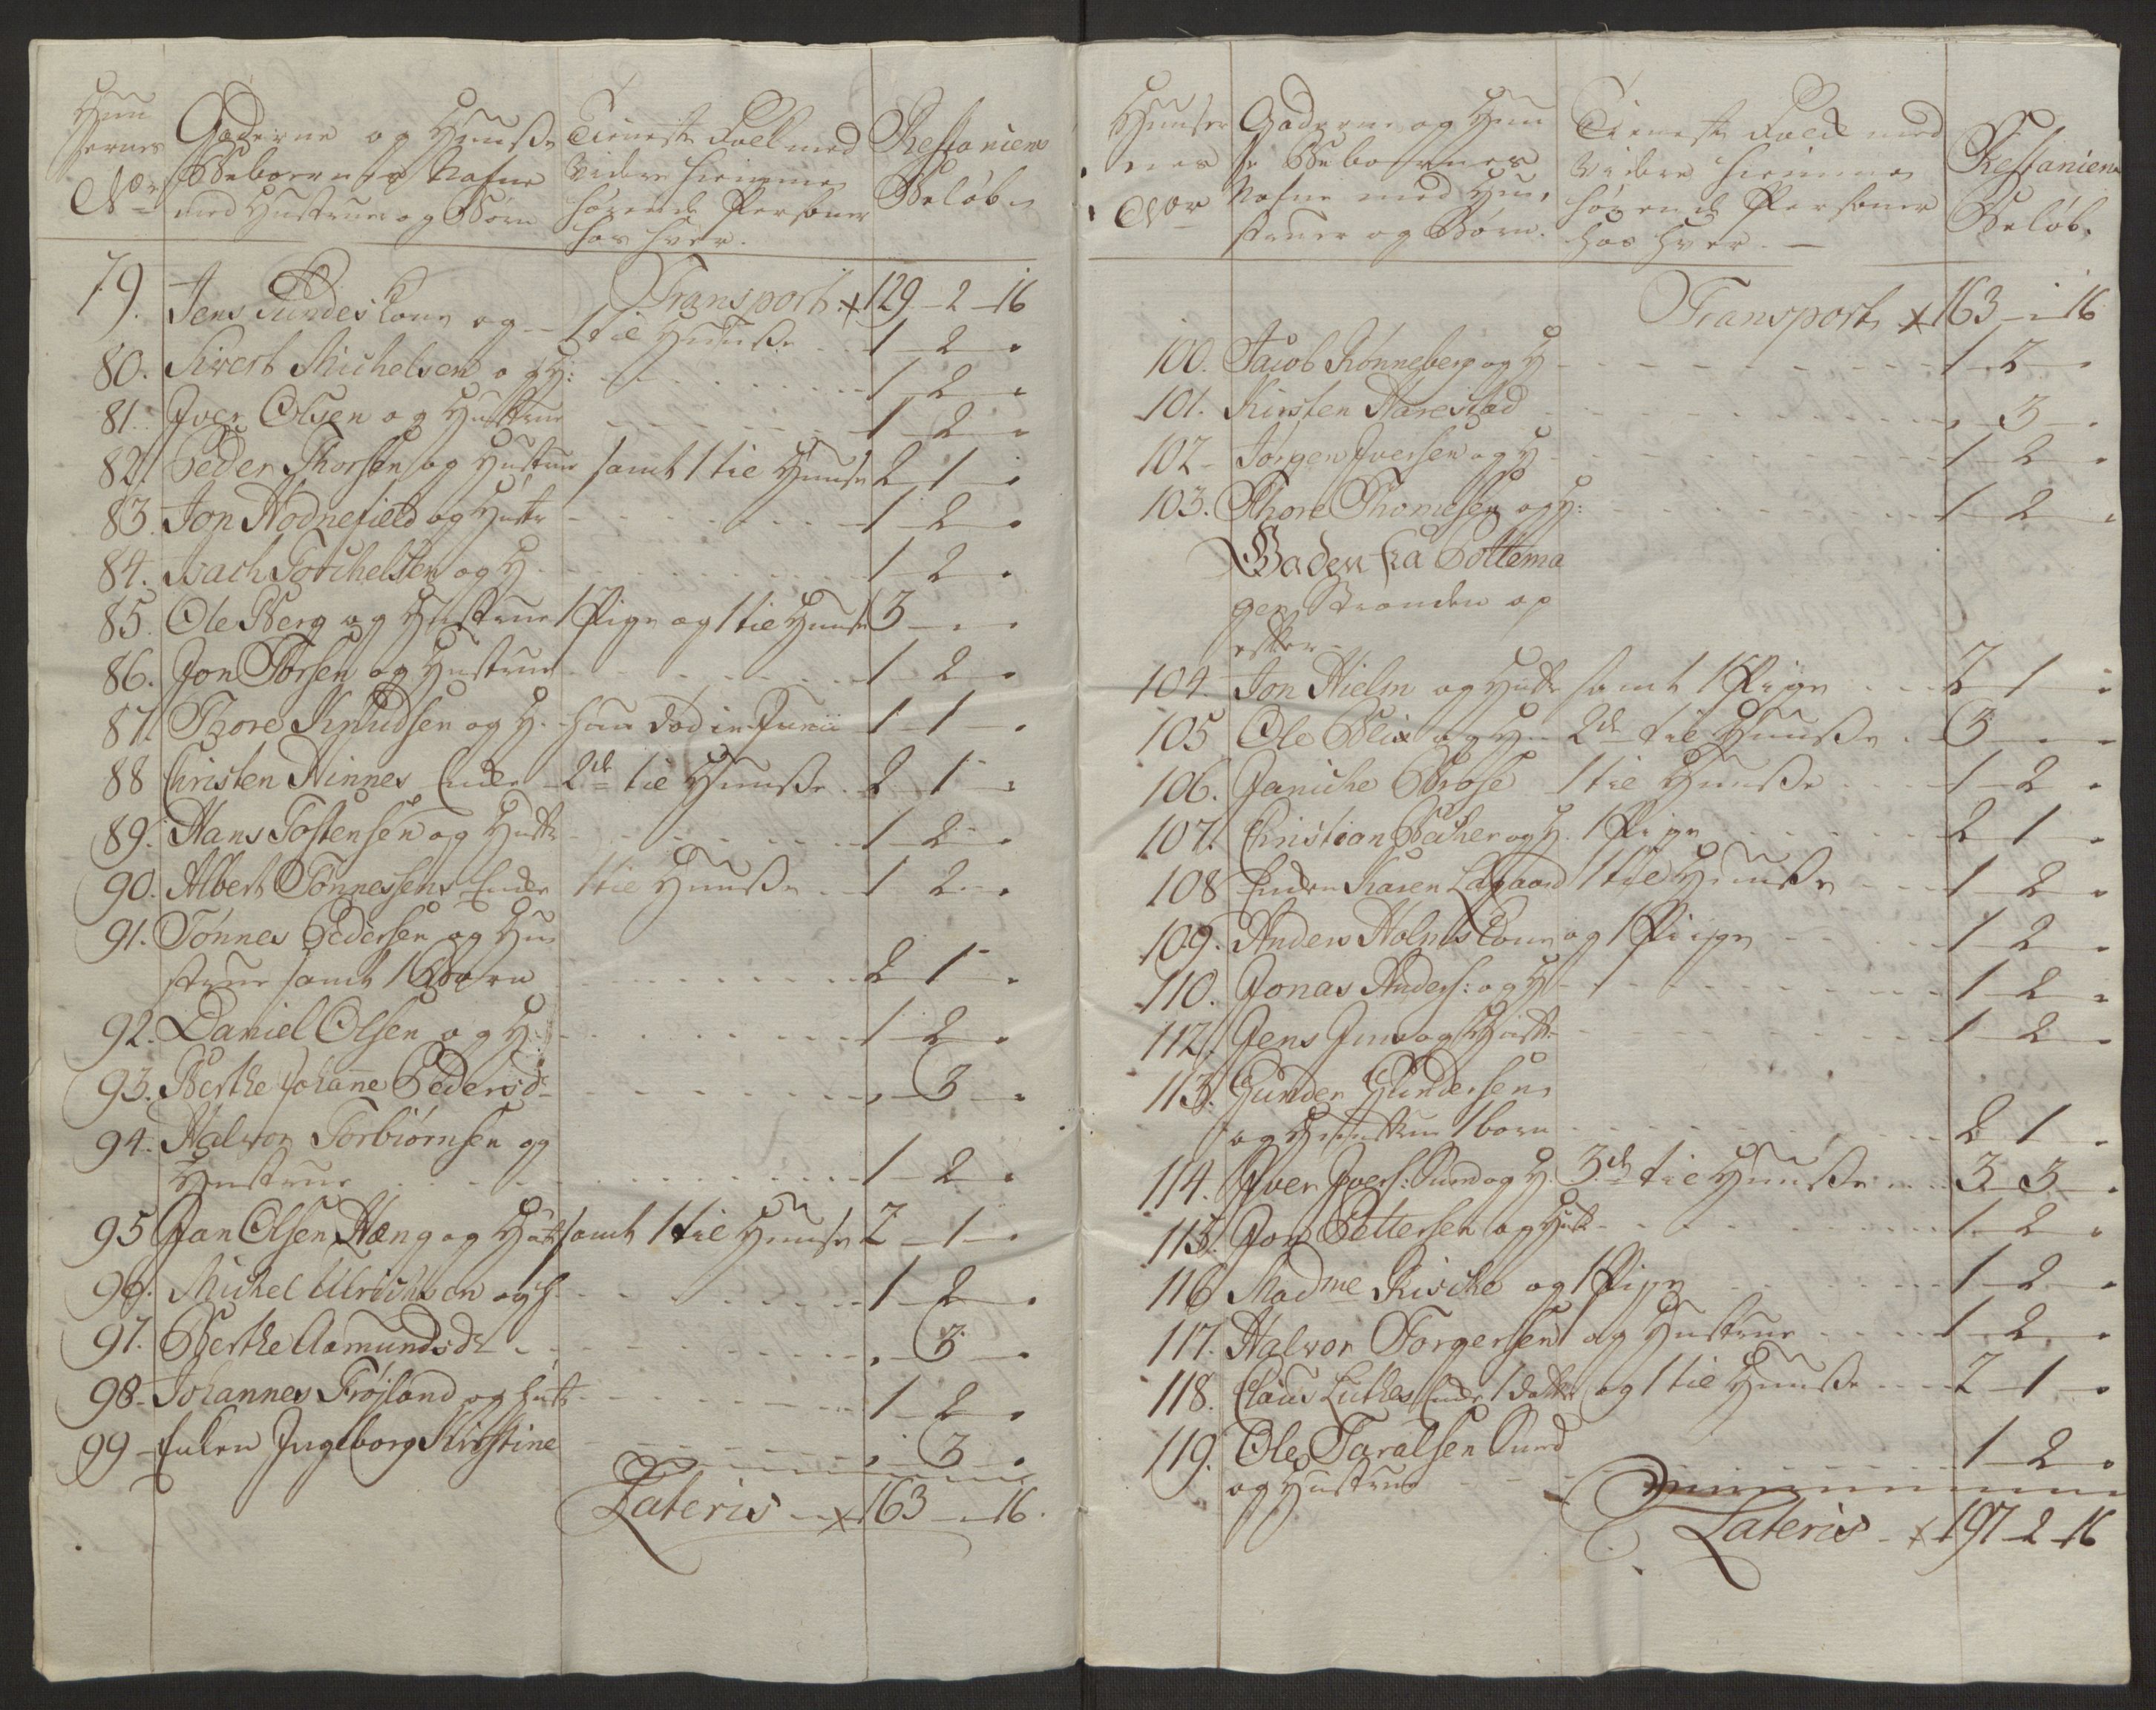 Huu
sernes
No
Gaderne og Huuße
Beboernes Nafne
med Hustruer og Børn
Tieneste Folk med
videre hiemme
hørende Personer
hos hver.
Restancens
Beløb
Transport x 129 - 2 - 16
79. Jens Sundes Kone og - 1 til Huuße - 1 - 2 -
80. Sivert Michelsen og H: - 1 - 2 -
81. Iver Olsen og Hustrue - 1 - 2 -
82. Peder Thorsen og Hustrue samt 1 til Huuse 2 - 1 -
83. Jon Hodnefield og Hustr - 1 - 2 -
84. Isach Torchelsen og H - 1 - 2 -
85. Ole Berg og Hustrue 1 Pige og 1 til Huuse 3 - -
86. Jon Torsen og Hustrue - 1 - 2 -
87. Thore Knudsen og H. - han død in Junii 1 - 1 -
88 Christen Hinnes Enke - 2de til Huuße - 2 - 1 -
89. Hans Tostensen og Hustr - 1 - 2 -
90. Albert Tønnessens Enke 1 til Huuße - 1 - 2 -
91. Tønnes Pedersen og Hu
strue samt 1 Barn - 2 - 1 -
92. Daniel Olsen og H: - 1 - 2 -
93. Berthe Johanne Pedersdr - 3 -
94. Halvor Torbiørnsen og
Hustrue - 1 - 2 -
95 Jan Olsen Hæng og Hust samt 1 til Huuse 2 - 1 -
96. Michel Ulrichsen og H - 1 - 2 -
97. Berthe Aamundsdr - 3 -
98. Johannes Frøjland og Hustr - 1 - 2 -
99 - Enken Ingeborg Kirstine - 3 -
Lateris - x 163 - 16.
Huuser
nes
Nor
Gaderne og Huu
se Beboernes
Nafne med Hu,
struer og Børn.
Tieneste Folk med
videre hiemme
hørende Personer
hos hver. -
Restancens
Beløb.
Transport x 163 - 16
100. Jacob Rønneberg og H - 1 - 2 -
101. Kirsten Harestad - 3 -
102 - Jørgen Iversen og H - 1 - 2 -
103. Thore Thomesen og H: - 1 - 2 -
Gaden fra Pottema
ger Stranden op
efter
104. Jon Hielm og Hustr samt 1 Pige - 2 1 -
105 Ole Blix og H - 2de til Huuße - 3 - -
106. Janiche Brose 1 til Huuße - 1 - 2 -
107. Christian Becher og H. 1 Pige - 2 1 -
108 Enken Karen Lagaard 1 til Huuße - 1 - 2 -
109. Anders Holms Kone og 1 Pige - 1 2 -
110. Jonas Anders: og H - 1 - 2 -
112. Jens Juv og Hustr - 1 - 2 -
113. Gunder Gundersen
og Hustrue 1 barn - 2 1 -
114. Iver Ivers: Sund og H. 3de til Huuße - 3 3 -
115. Jon Pettersen og Hustr - 1 - 2 -
116 Madme Kiviche og 1 Pige - 1 - 2 -
117. Halvor Torgersen og Hustrue - 1 - 2 -
118. Claus Lutkes Enke 1 datter og 1 til Huuße - 2 - 1 -
119. Ole Taralsen Sund
og Hustrue - 1 - 2 -
Lateris - x 197 - 2 - 16